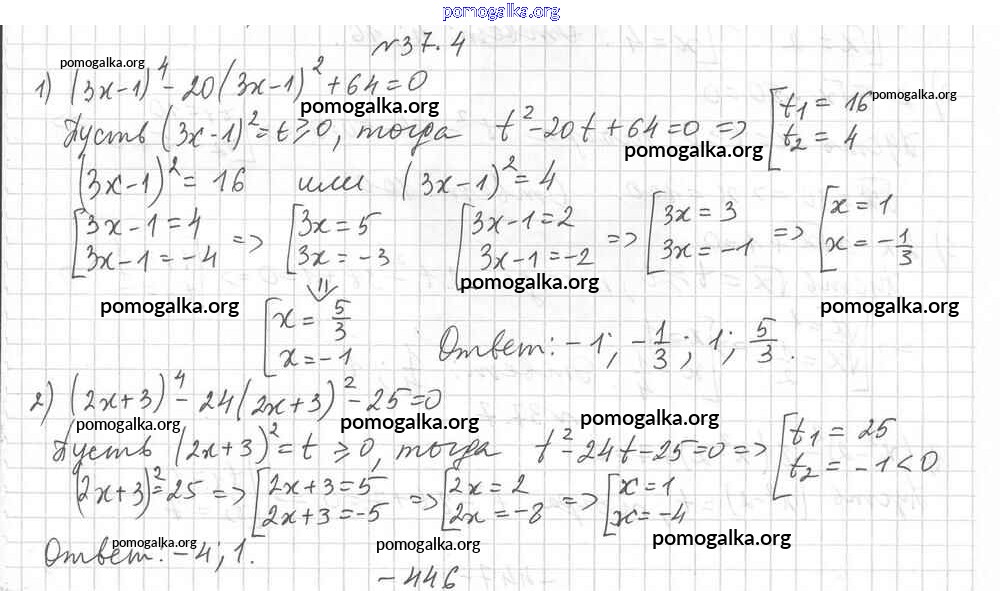 pomogalka.org
№37.4
pomogalka.org
1) (3x-1)⁴-20(3x-1)²+64=0
pomogalka.org
Пусть (3x-1)²=t≥0, тогда t²-20t+64=0 => [t₁=16 t₂=4
pomogalka.org
pomogalka.org
(3x-1)²=16 или (3x-1)²=4
[3x-1=4 3x-1=-4 => [3x=5 3x=-3 [3x-1=2 3x-1=-2 => [3x=3 3x=-1 => [x=1 x=-1/3
pomogalka.org
pomogalka.org
pomogalka.org
=> [x=5/3 x=-1 Ответ: -1; -1/3; 1; 5/3.
2) (2x+3)⁴-24(2x+3)²-25=0
pomogalka.org
pomogalka.org
pomogalka.org
Пусть (2x+3)²=t≥0, тогда t²-24t-25=0 => [t₁=25 t₂=-1<0
(2x+3)²=25 => [2x+3=5 2x+3=-5 => [2x=2 2x=-8 => [x=1 x=-4
pomogalka.org
pomogalka.org
pomogalka.org
Ответ: -4; 1.
-446